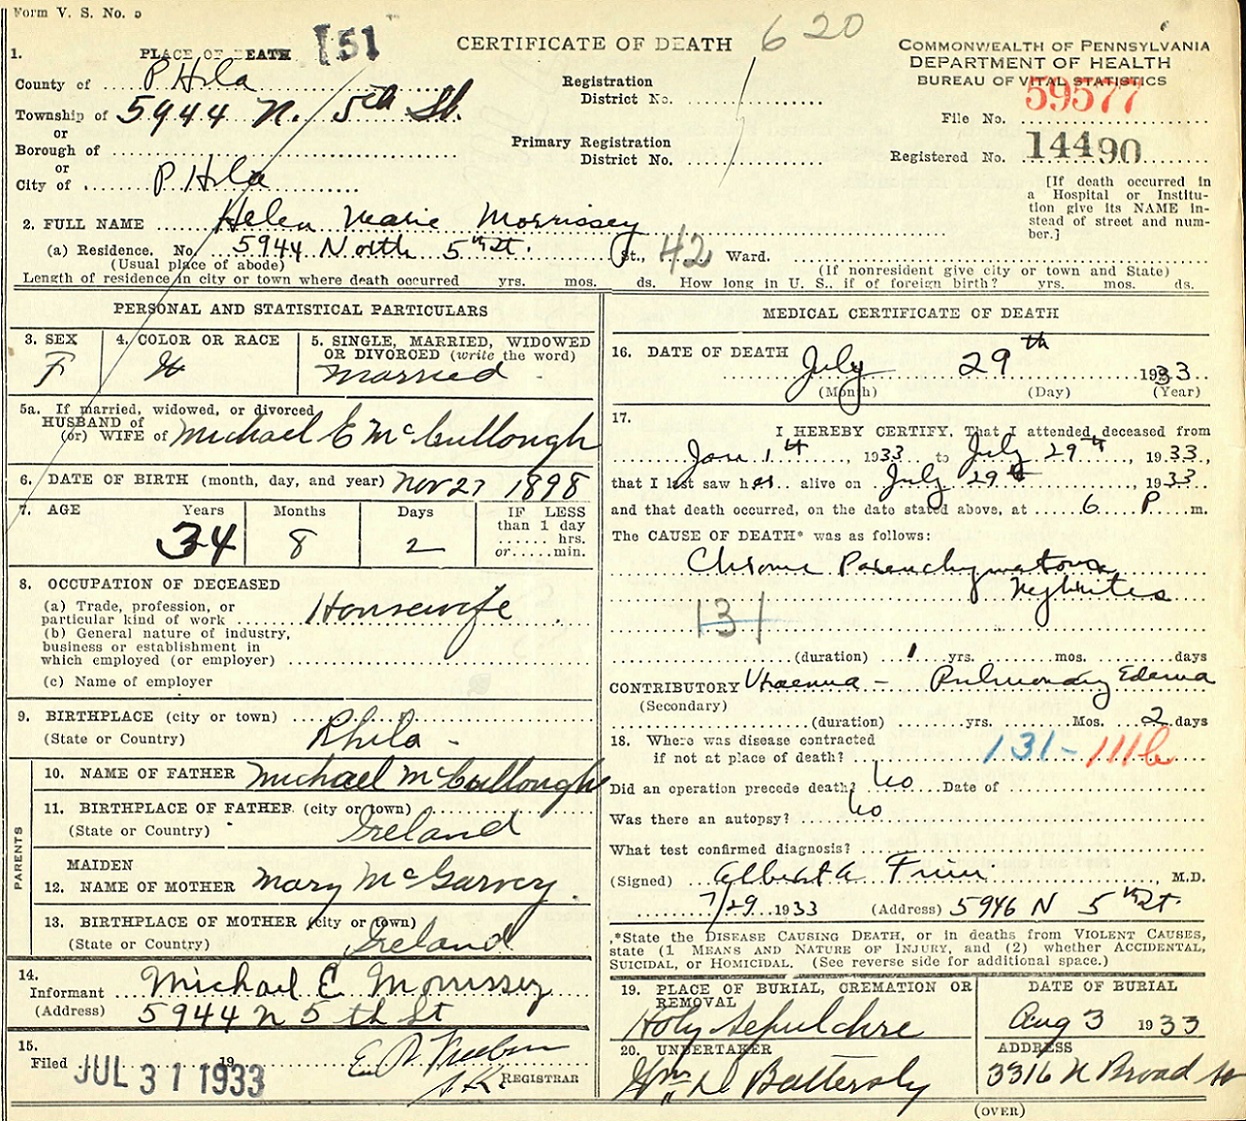 Form V. S. No. 5
CERTIFICATE OF DEATH
620
COMMONWEALTH OF PENNSYLVANIA
DEPARTMENT OF HEALTH
BUREAU OF VITAL STATISTICS
1. PLACE OF DEATH 151
County of Phila
Township of 5944 N. 5th St.
or
Borough of
or
City of Phila
Registration
District No.
Primary Registration
District No.
File No. 59577
Registered No. 14490
[If death occurred in
a Hospital or Institu-
tion give its NAME in-
stead of street and num-
ber.]
2. FULL NAME Helen Marie Morrissey
(a) Residence. No. 5944 North 5th St. St., 42 Ward.
(Usual place of abode) (If nonresident give city or town and State)
Length of residence in city or town where death occurred yrs. mos. ds. How long in U. S., if of foreign birth? yrs. mos. ds.
PERSONAL AND STATISTICAL PARTICULARS
3. SEX F
4. COLOR OR RACE W
5. SINGLE, MARRIED, WIDOWED
OR DIVORCED (write the word)
Married
5a. If married, widowed, or divorced
HUSBAND of
(or) WIFE of Michael E McCullough
6. DATE OF BIRTH (month, day, and year) Nov 27 1898
7. AGE Years Months Days IF LESS
than 1 day
34 8 2 hrs.
or min.
8. OCCUPATION OF DECEASED
(a) Trade, profession, or
particular kind of work Housewife
(b) General nature of industry,
business or establishment in
which employed (or employer)
(c) Name of employer
9. BIRTHPLACE (city or town)
(State or Country) Phila -
PARENTS
10. NAME OF FATHER Michael McCullough
11. BIRTHPLACE OF FATHER (city or town)
(State or Country) Ireland
MAIDEN
12. NAME OF MOTHER Mary McGarvey.
13. BIRTHPLACE OF MOTHER (city or town)
(State or Country) Ireland
14.
Informant Michael E Morrissey
(Address) 5944 N 5th St
15.
Filed JUL 31 1933 19
REGISTRAR
MEDICAL CERTIFICATE OF DEATH
16. DATE OF DEATH July 29th 1933
(Month) (Day) (Year)
17.
I HEREBY CERTIFY, That I attended deceased from
Jan 1st, 1933 to July 29th, 1933,
that I last saw her alive on July 29th, 1933
and that death occurred, on the date stated above, at 6 P m.
The CAUSE OF DEATH* was as follows:
Chronic Parenchymatous
Nephritis
131
(duration) 1 yrs. mos. days
CONTRIBUTORY Uraemia - Pulmonary Edema
(Secondary)
(duration) yrs. Mos. 2 days
18. Where was disease contracted
if not at place of death? 131-111b
Did an operation precede death? No Date of
Was there an autopsy? No
What test confirmed diagnosis?
(Signed) Albert A , M.D.
7/29 1933 (Address) 5946 N 5th St.
*State the DISEASE CAUSING DEATH, or in deaths from VIOLENT CAUSES,
state (1 MEANS AND NATURE OF INJURY, and (2) whether ACCIDENTAL,
SUICIDAL, or HOMICIDAL. (See reverse side for additional space.)
19. PLACE OF BURIAL, CREMATION OR
REMOVAL
Holy Sepulchre
DATE OF BURIAL
Aug 3 1933
20. UNDERTAKER
Wm D Battersby
ADDRESS
3316 N Broad St
(OVER)